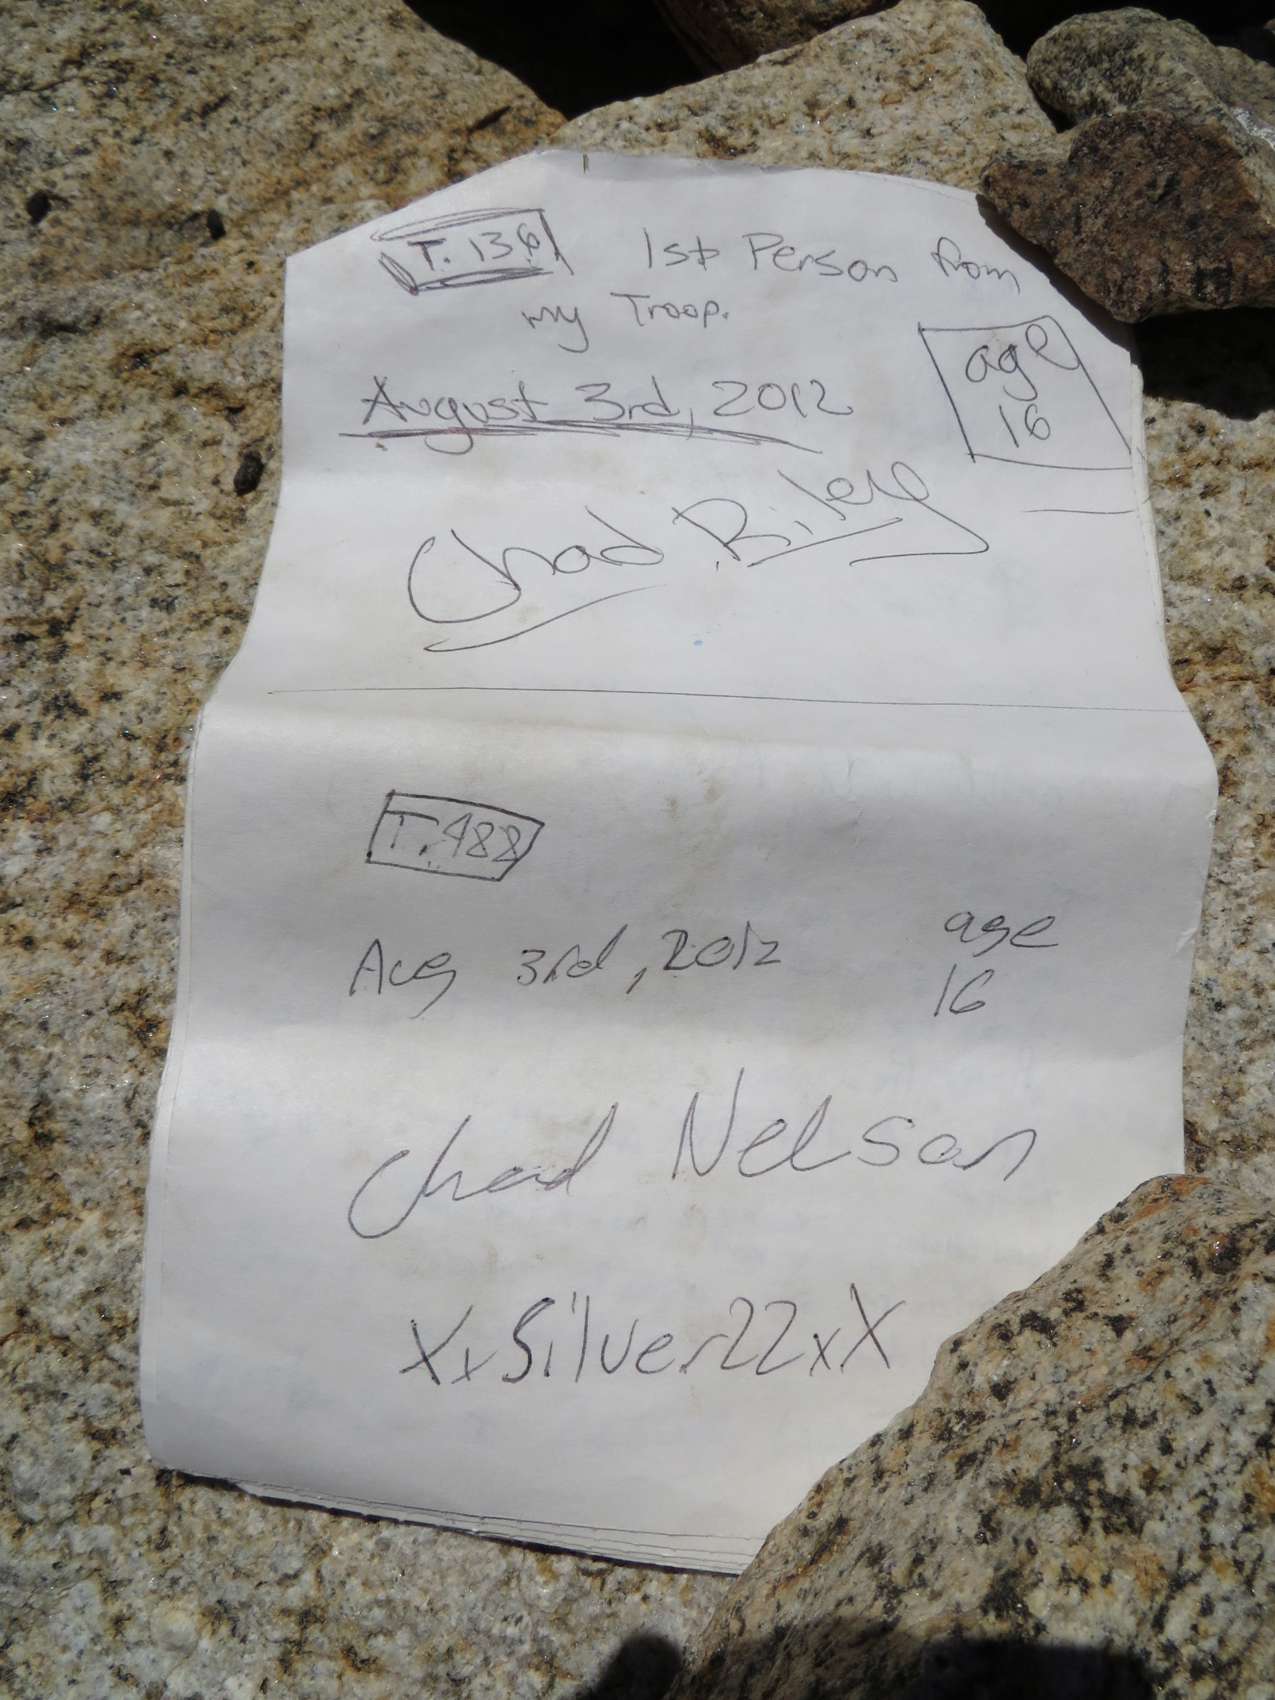 T. 136 1st Person from
my Troop.
age
16
August 3rd, 2012
Chad Riley
T. 488
Aug 3rd, 2012
age
16
Chad Nelson
XxSilver22xX